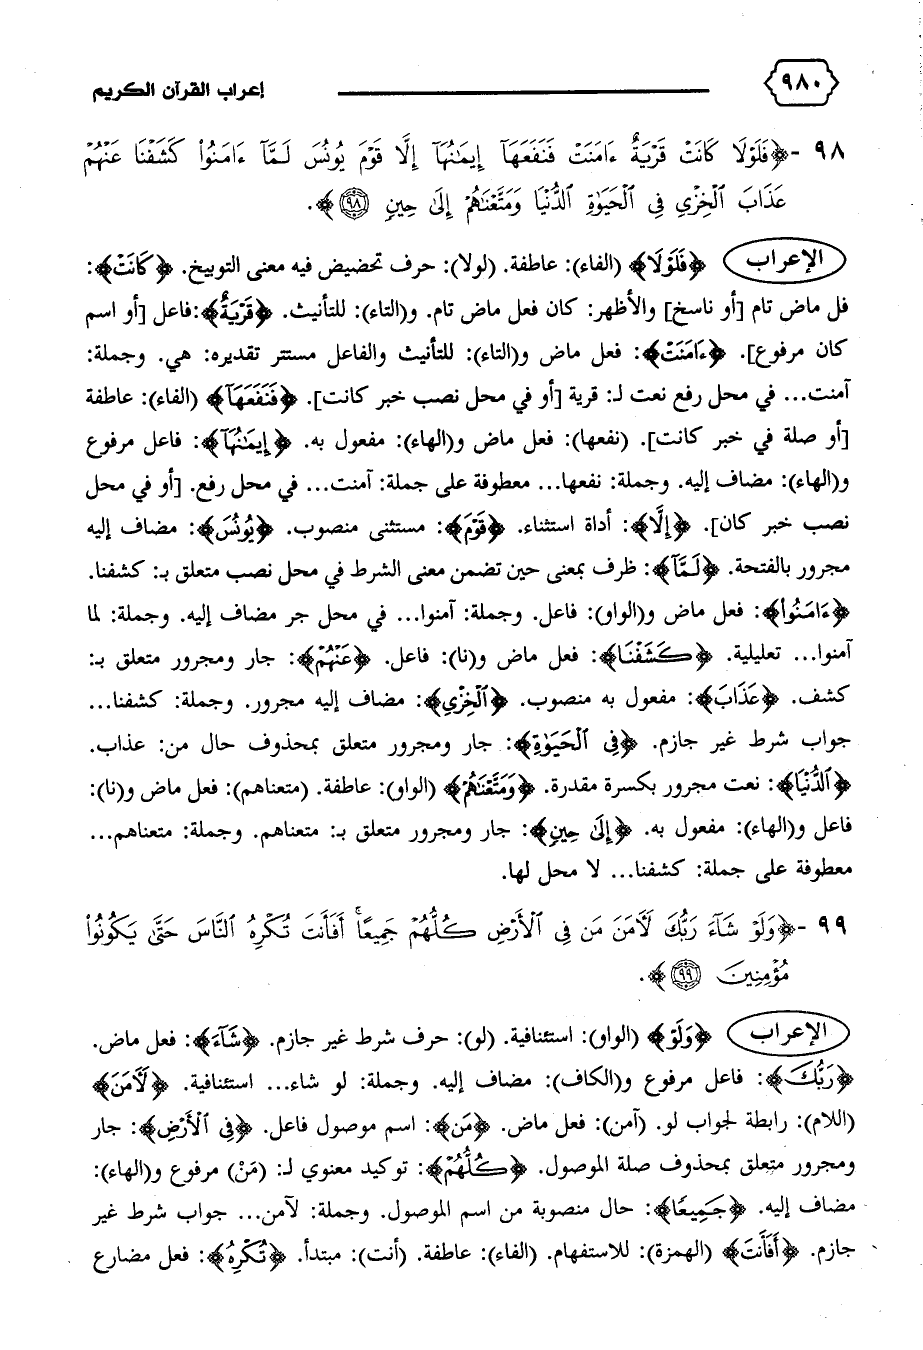 ٩٨٠ إعراب القرآن الكريم
٩٨ -﴿فَلَوْلَا كَانَتْ قَرْيَةٌ ءَامَنَتْ فَنَفَعَهَآ إِيمَٰنُهَآ إِلَّا قَوْمَ يُونُسَ لَمَّآ ءَامَنُوا۟ كَشَفْنَا عَنْهُمْ
عَذَابَ ٱلْخِزْىِ فِى ٱلْحَيَوٰةِ ٱلدُّنْيَا وَمَتَّعْنَٰهُمْ إِلَىٰ حِينٍ ٩٨﴾.
الإعراب ﴿فَلَوْلَا﴾ (الفاء): عاطفة. (لولا): حرف تحضيض فيه معنى التوبيخ. ﴿كَانَتْ﴾:
فل ماض تام [أو ناسخ] والأظهر: كان فعل ماض تام. و(التاء): للتأنيث. ﴿قَرْيَةٌ﴾:فاعل [أو اسم
كان مرفوع]. ﴿ءَامَنَتْ﴾: فعل ماض و(التاء): للتأنيث والفاعل مستتر تقديره: هي. وجملة:
آمنت... في محل رفع نعت لـ: قرية [أو في محل نصب خبر كانت]. ﴿فَنَفَعَهَآ﴾ (الفاء): عاطفة
[أو صلة في خبر كانت]. (نفعها): فعل ماض و(الهاء): مفعول به. ﴿إِيمَٰنُهَآ﴾: فاعل مرفوع
و(الهاء): مضاف إليه. وجملة: نفعها... معطوفة على جملة: آمنت... في محل رفع. [أو في محل
نصب خبر كان]. ﴿إِلَّا﴾: أداة استثناء. ﴿قَوْمَ﴾: مستثنى منصوب. ﴿يُونُسَ﴾: مضاف إليه
مجرور بالفتحة. ﴿لَمَّآ﴾: ظرف بمعنى حين تضمن معنى الشرط في محل نصب متعلق بـ: كشفنا.
﴿ءَامَنُوا۟﴾: فعل ماض و(الواو): فاعل. وجملة: آمنوا... في محل جر مضاف إليه. وجملة: لما
آمنوا... تعليلية. ﴿كَشَفْنَا﴾: فعل ماض و(نا): فاعل. ﴿عَنْهُمْ﴾: جار ومجرور متعلق بـ:
كشف. ﴿عَذَابَ﴾: مفعول به منصوب. ﴿ٱلْخِزْىِ﴾: مضاف إليه مجرور. وجملة: كشفنا...
جواب شرط غير جازم. ﴿فِى ٱلْحَيَوٰةِ﴾: جار ومجرور متعلق بمحذوف حال من: عذاب.
﴿ٱلدُّنْيَا﴾: نعت مجرور بكسرة مقدرة. ﴿وَمَتَّعْنَٰهُمْ﴾ (الواو): عاطفة. (متعناهم): فعل ماض و(نا):
فاعل و(الهاء): مفعول به. ﴿إِلَىٰ حِينٍ﴾: جار ومجرور متعلق بـ: متعناهم. وجملة: متعناهم...
معطوفة على جملة: كشفنا... لا محل لها.
٩٩ -﴿وَلَوْ شَآءَ رَبُّكَ لَءَامَنَ مَن فِى ٱلْأَرْضِ كُلُّهُمْ جَمِيعًا ۚ أَفَأَنتَ تُكْرِهُ ٱلنَّاسَ حَتَّىٰ يَكُونُوا۟
مُؤْمِنِينَ ٩٩﴾.
الإعراب ﴿وَلَوْ﴾ (الواو): استئنافية. (لو): حرف شرط غير جازم. ﴿شَآءَ﴾: فعل ماض.
﴿رَبُّكَ﴾: فاعل مرفوع و(الكاف): مضاف إليه. وجملة: لو شاء... استئنافية. ﴿لَءَامَنَ﴾
(اللام): رابطة لجواب لو. (آمن): فعل ماض. ﴿مَن﴾: اسم موصول فاعل. ﴿فِى ٱلْأَرْضِ﴾: جار
ومجرور متعلق بمحذوف صلة الموصول. ﴿كُلُّهُمْ﴾: توكيد معنوي لـ: (مَنْ) مرفوع و(الهاء):
مضاف إليه. ﴿جَمِيعًا﴾: حال منصوبة من اسم الموصول. وجملة: لآمن... جواب شرط غير
جازم. ﴿أَفَأَنتَ﴾ (الهمزة): للاستفهام. (الفاء): عاطفة. (أنت): مبتدأ. ﴿تُكْرِهُ﴾: فعل مضارع